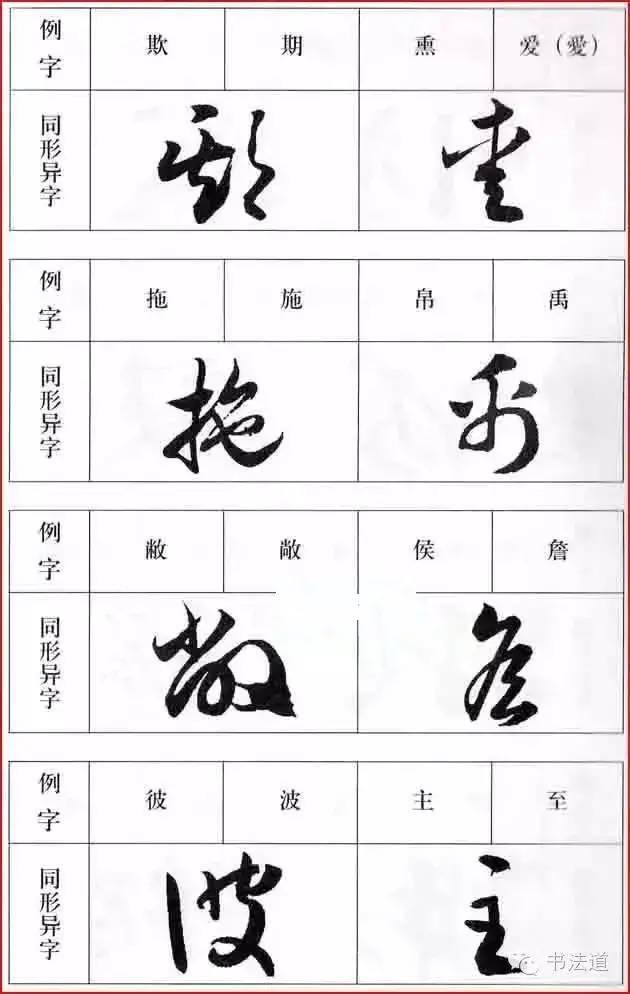 例字 欺 期 熏 爱（愛）
同形异字
例字 拖 施 帛 禹
同形异字
例字 敝 敞 侯 詹
同形异字
例字 彼 波 主 至
同形异字
书法道